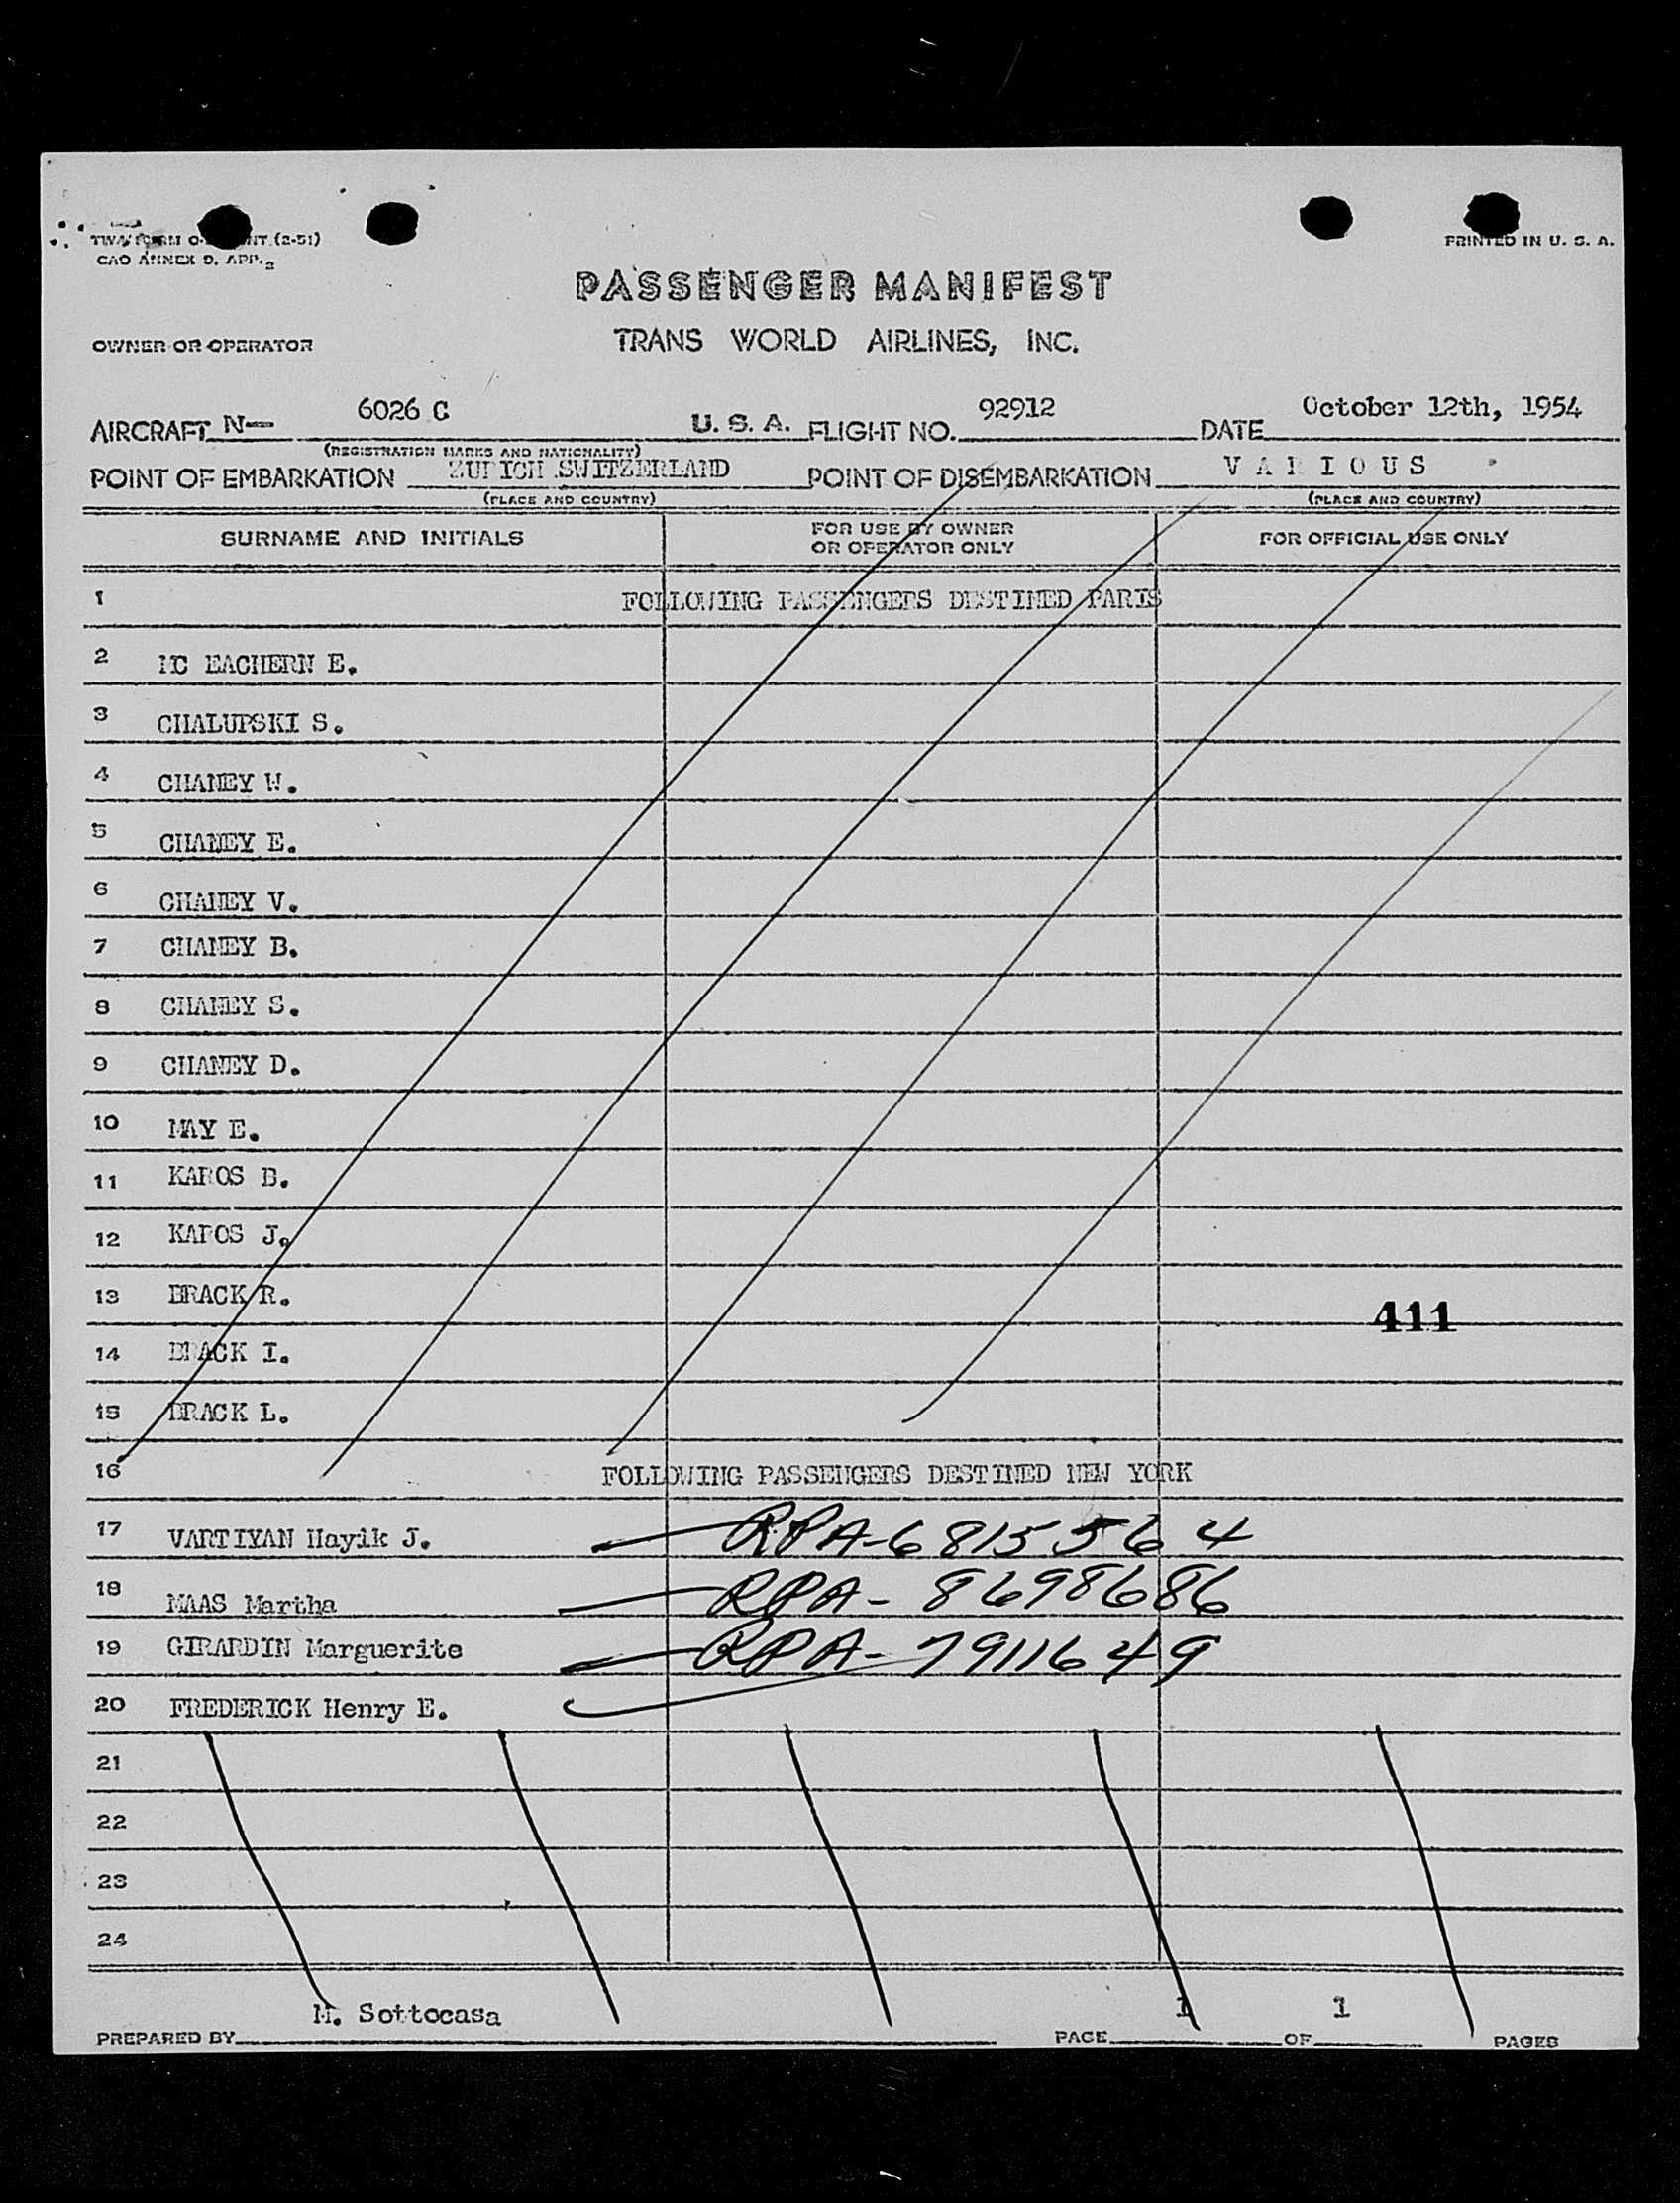 PRINTED IN U. S. A.
PASSENGER MANIFEST
OWNER OR OPERATOR
TRANS WORLD AIRLINES, INC.
AIRCRAFT N— 6026 C U. S. A. FLIGHT NO. 92912 DATE October 12th, 1954
(REGISTRATION MARKS AND NATIONALITY)
POINT OF EMBARKATION ZURICH SWITZERLAND POINT OF DISEMBARKATION V A R I O U S
(PLACE AND COUNTRY) (PLACE AND COUNTRY)
SURNAME AND INITIALS FOR USE BY OWNER OR OPERATOR ONLY FOR OFFICIAL USE ONLY
1 FOLLOWING PASSENGERS DESTINED PARIS
2 MC EACHERN E.
3 CHALUPSKI S.
4 CHANEY W.
5 CHANEY E.
6 CHANEY V.
7 CHANEY B.
8 CHANEY S.
9 CHANEY D.
10 MAY E.
11 KAROS B.
12 KAROS J.
13 BRACK R.
411
14 BRACK I.
15 BRACK L.
16 FOLLOWING PASSENGERS DESTINED NEW YORK
17 VARTIYAN Hayik J. RPA-6815564
18 MAAS Martha RPA-8698686
19 GIRARDIN Marguerite RPA-7911649
20 FREDERICK Henry E.
21
22
23
24
PREPARED BY M. Sottocasa PAGE 1 OF 1 PAGES